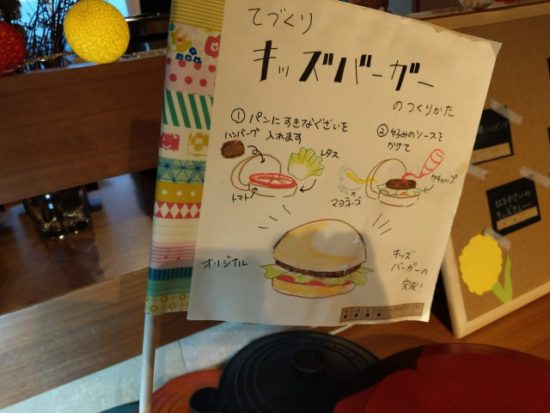 てづくり
キッズバーガー
のつくりかた
① パンにすきなぐざいを
入れます
ハンバーグ
レタス
トマト
② お好みのソースを
かけて
ケチャップ
マヨネーズ
オリジナル
キッズ
バーガーの
完成!